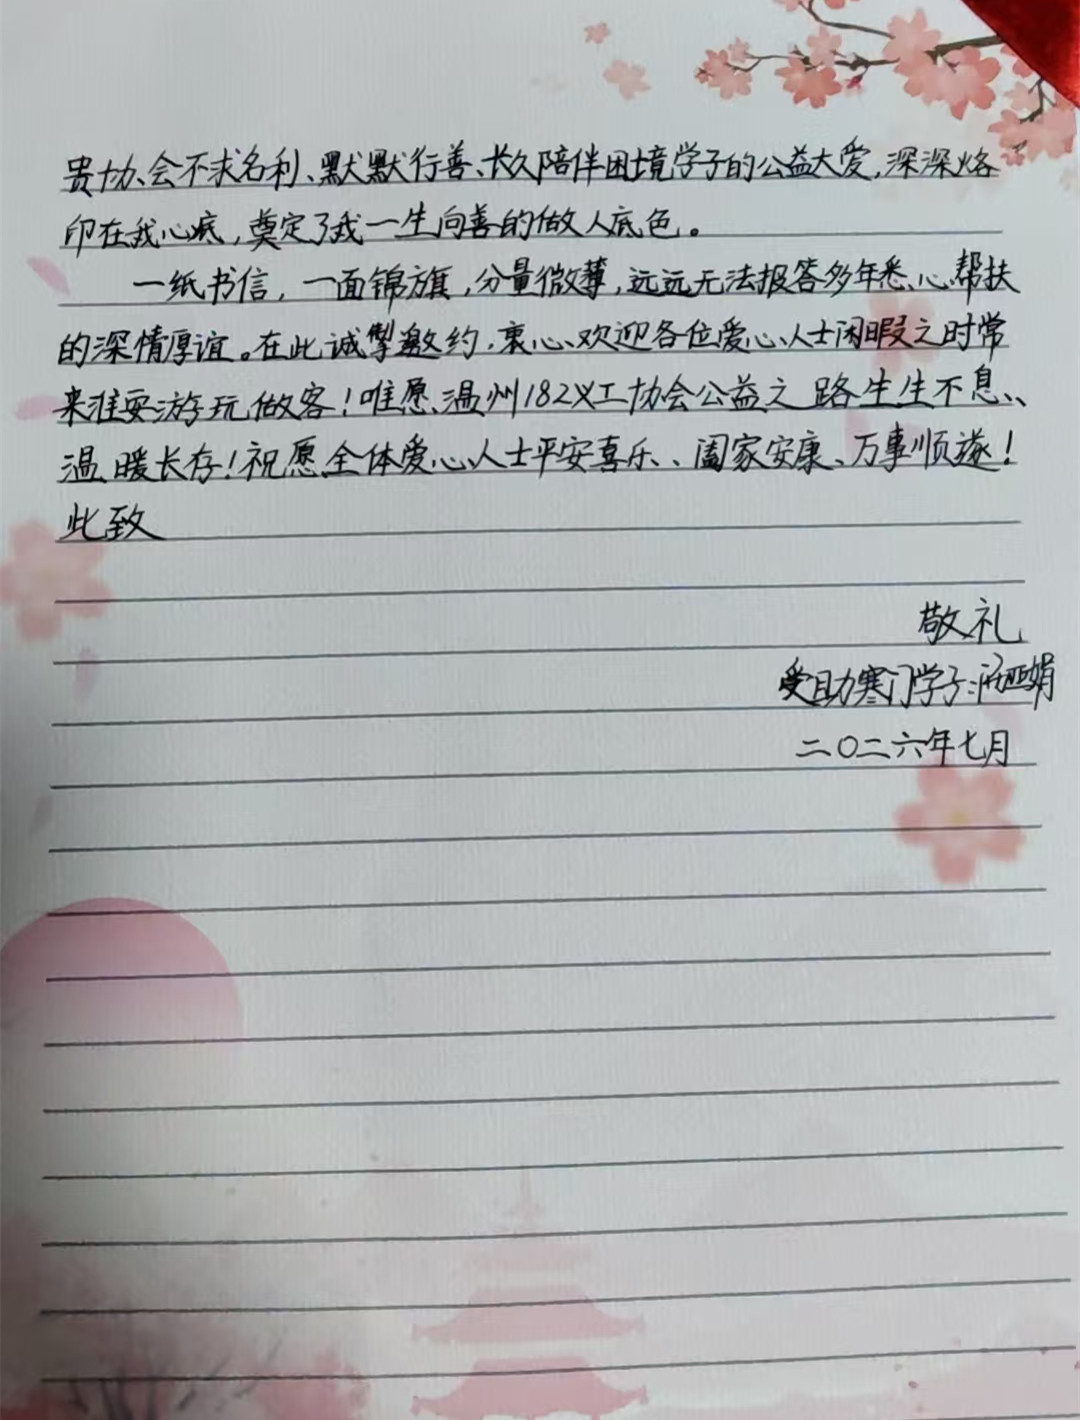 贵协会不求名利、默默行善、长久陪伴困境学子的公益大爱,深深烙
印在我心底,奠定了我一生向善的做人底色。
一纸书信,一面锦旗,分量微薄,远远无法报答多年悉心帮扶
的深情厚谊。在此诚挚邀约,衷心欢迎各位爱心人士闲暇之时常
来淮安游玩做客!唯愿温州182义工协会公益之路生生不息、
温暖长存!祝愿全体爱心人士平安喜乐、阖家安康、万事顺遂!
此致
敬礼
受助寒门学子:亚娟
二〇二六年七月